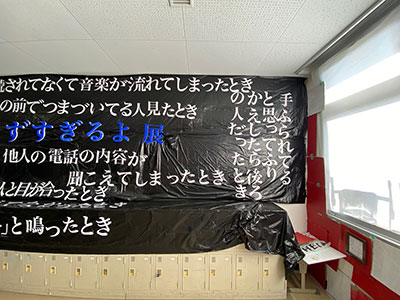 続されてなくて音楽が流れてしまったとき
の前でつまづいてる人見たとき
ずすぎるよ 展
他人の電話の内容が
聞こえてしまったとき
人と目が合ったとき
」と鳴ったとき
手ふられてる
と思ってふり
かえしたら後ろ
の人だったとき